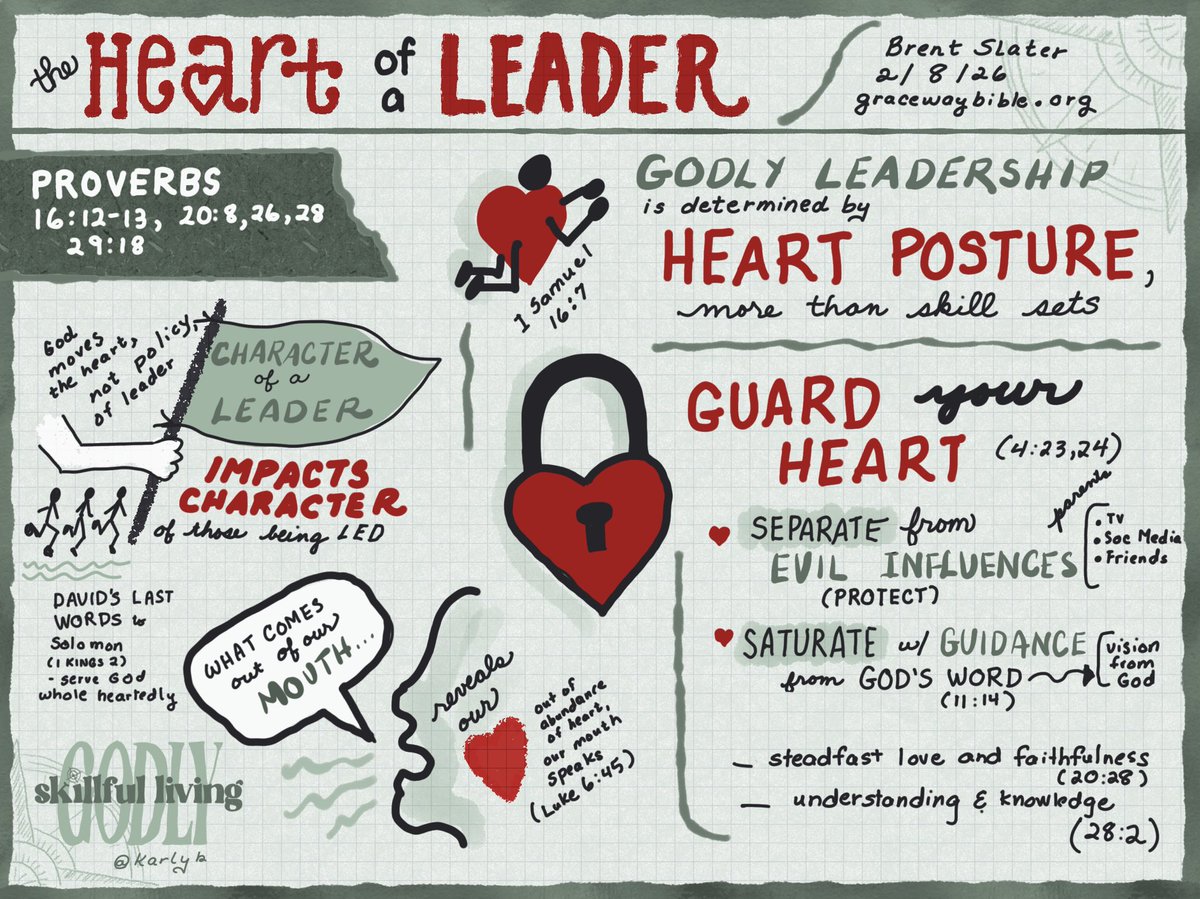 the Heart of a LEADER
Brent Slater
2/8/26
gracewaybible.org
PROVERBS
16:12-13, 20:8,26,28
29:18
1 Samuel
16:7
GODLY LEADERSHIP
is determined by
HEART POSTURE,
more than skill sets
God
moves
the heart,
not policy,
of leader
CHARACTER
of a
LEADER
IMPACTS
CHARACTER
of those being LED
DAVID'S LAST
WORDS to
Solomon
(1 KINGS 2)
- serve God
whole heartedly
WHAT COMES
out of our
MOUTH...
reveals
our
out of
abundance
of heart,
our mouth
speaks
(Luke 6:45)
GUARD your
HEART (4:23,24)
SEPARATE from
EVIL INFLUENCES
(PROTECT)
parents
• TV
• Soc Media
• Friends
SATURATE w/ GUIDANCE
from GOD'S WORD
(11:14)
vision
from
God
— steadfast love and faithfulness
(20:28)
— understanding & knowledge
(28:2)
GODLY
skillful living
@karlyb